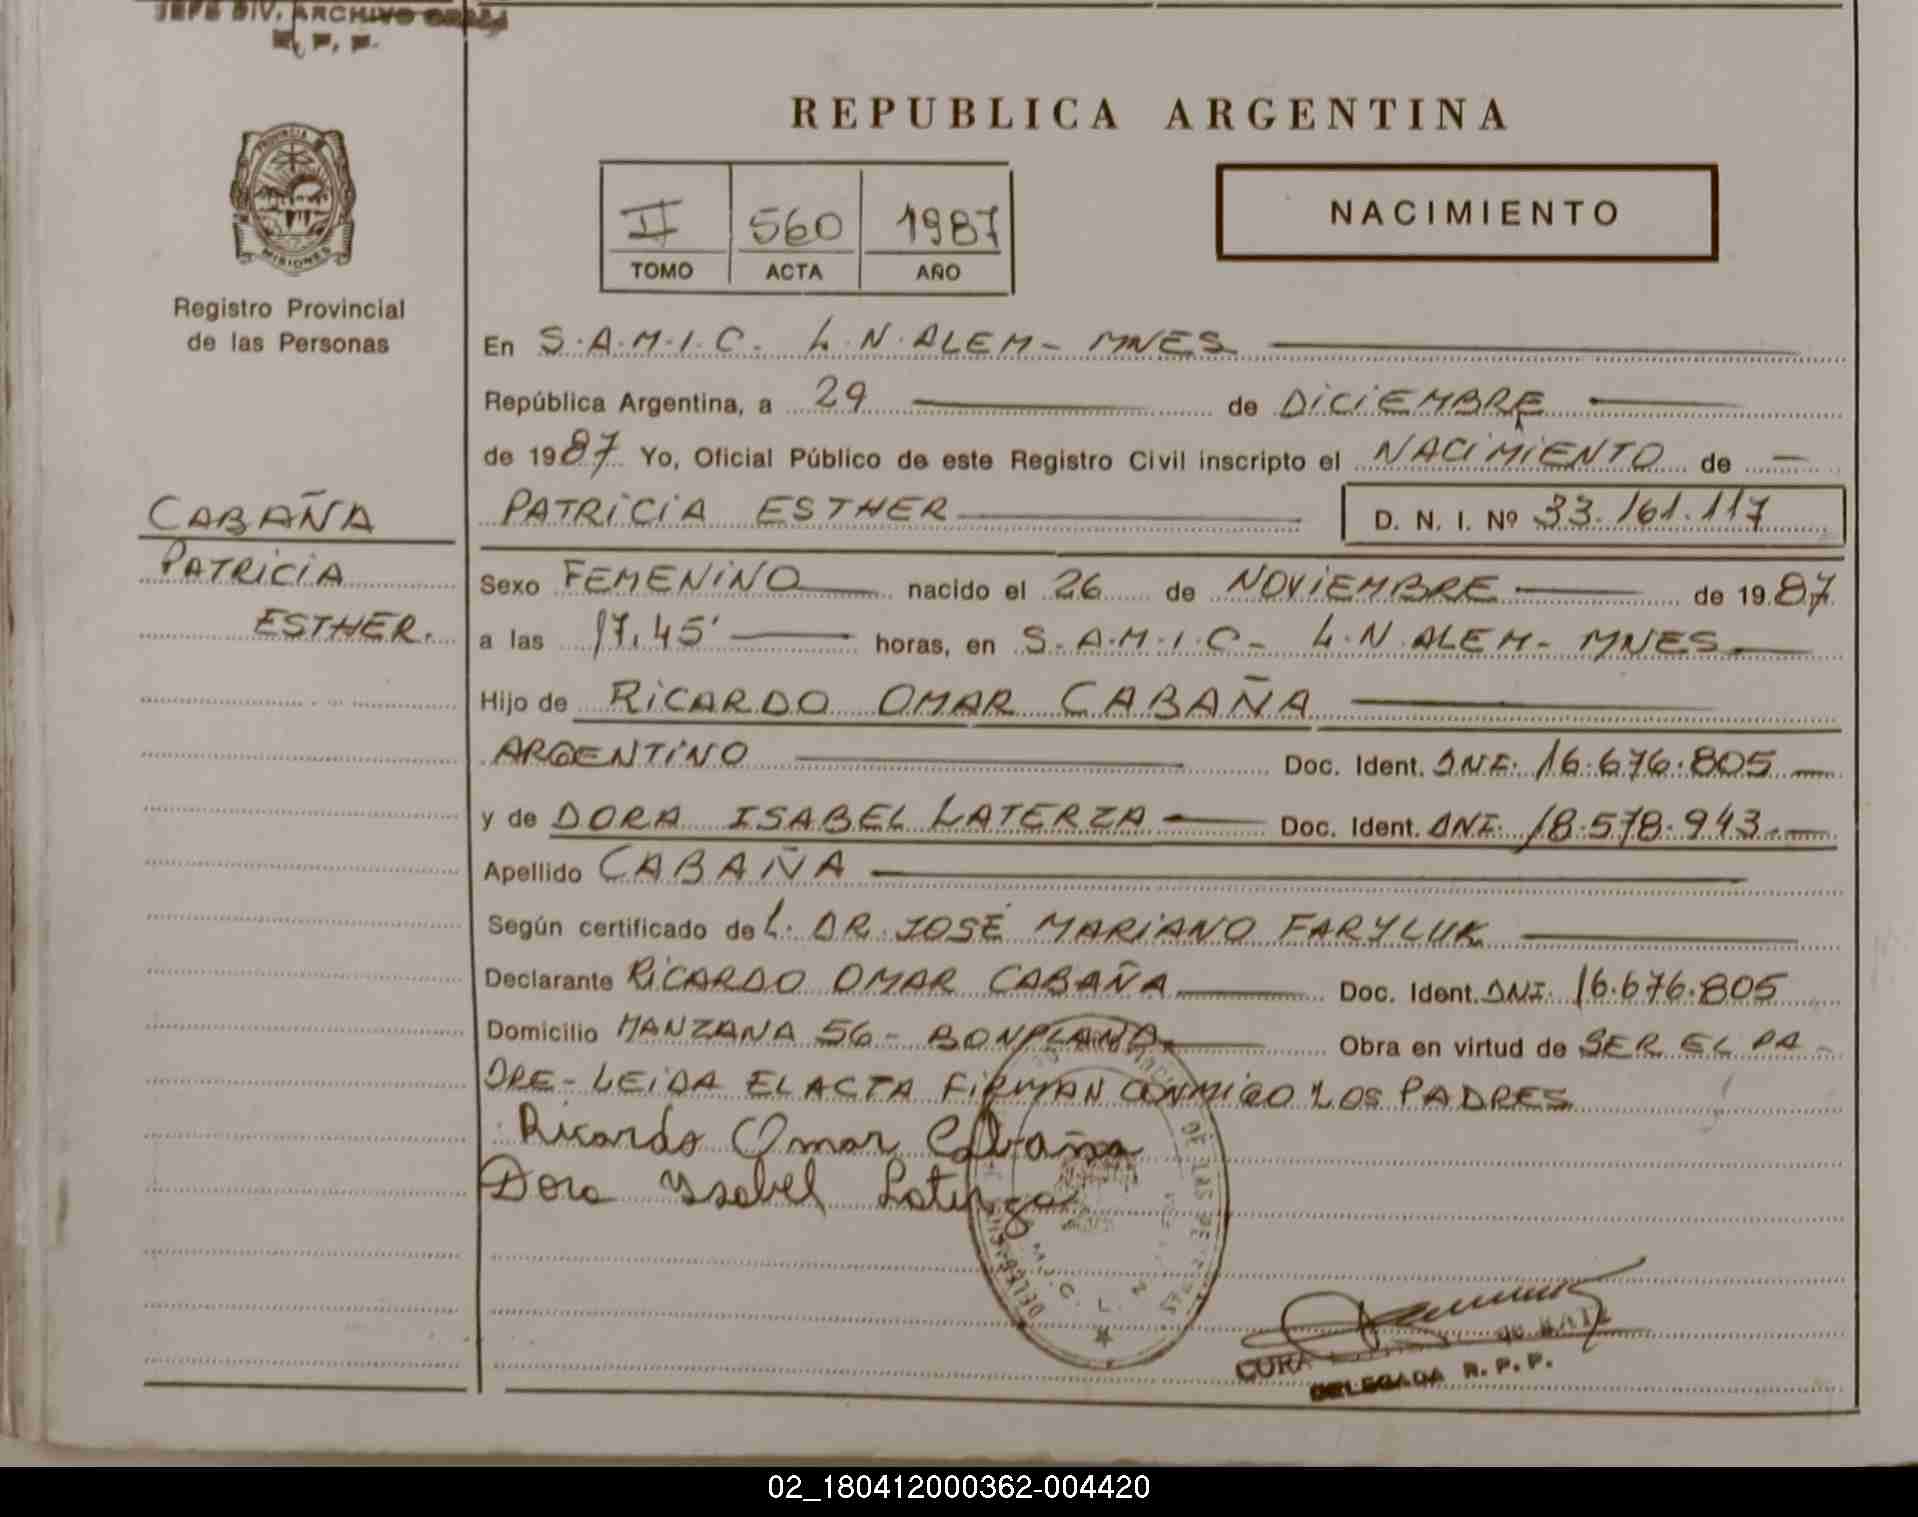 JEFE DIV. ARCHIVO GRAL
R. P. P.
PROVINCIA
MISIONES
Registro Provincial
de las Personas
CABAÑA
PATRICIA
ESTHER.
REPUBLICA ARGENTINA
II 560 1987
TOMO ACTA AÑO
NACIMIENTO
En S.A.M.I.C. L.N.ALEM- MNES
República Argentina, a 29 de DICIEMBRE
de 1987 Yo, Oficial Público de este Registro Civil inscripto el NACIMIENTO de
PATRICIA ESTHER D. N. I. Nº 33.161.117
Sexo FEMENINO nacido el 26 de NOVIEMBRE de 1987
a las 17.45' horas, en S.A.M.I.C- L.N.ALEM- MNES
Hijo de RICARDO OMAR CABAÑA
ARGENTINO Doc. Ident. DNI. 16.676.805
y de DORA ISABEL LATERZA Doc. Ident. DNI. 18.578.943
Apellido CABAÑA
Según certificado de L. DR. JOSÉ MARIANO FARYLUK
Declarante RICARDO OMAR CABAÑA Doc. Ident. DNI. 16.676.805
Domicilio MANZANA 56- BONPLAND. Obra en virtud de SER EL PA-
DRE- LEIDA EL ACTA FIRMAN CONMIGO LOS PADRES
Ricardo Omar Cabaña
Dora Ysabel Laterza
DE LAS PE
CURA
DELEGADA R. P. P.
02_180412000362-004420